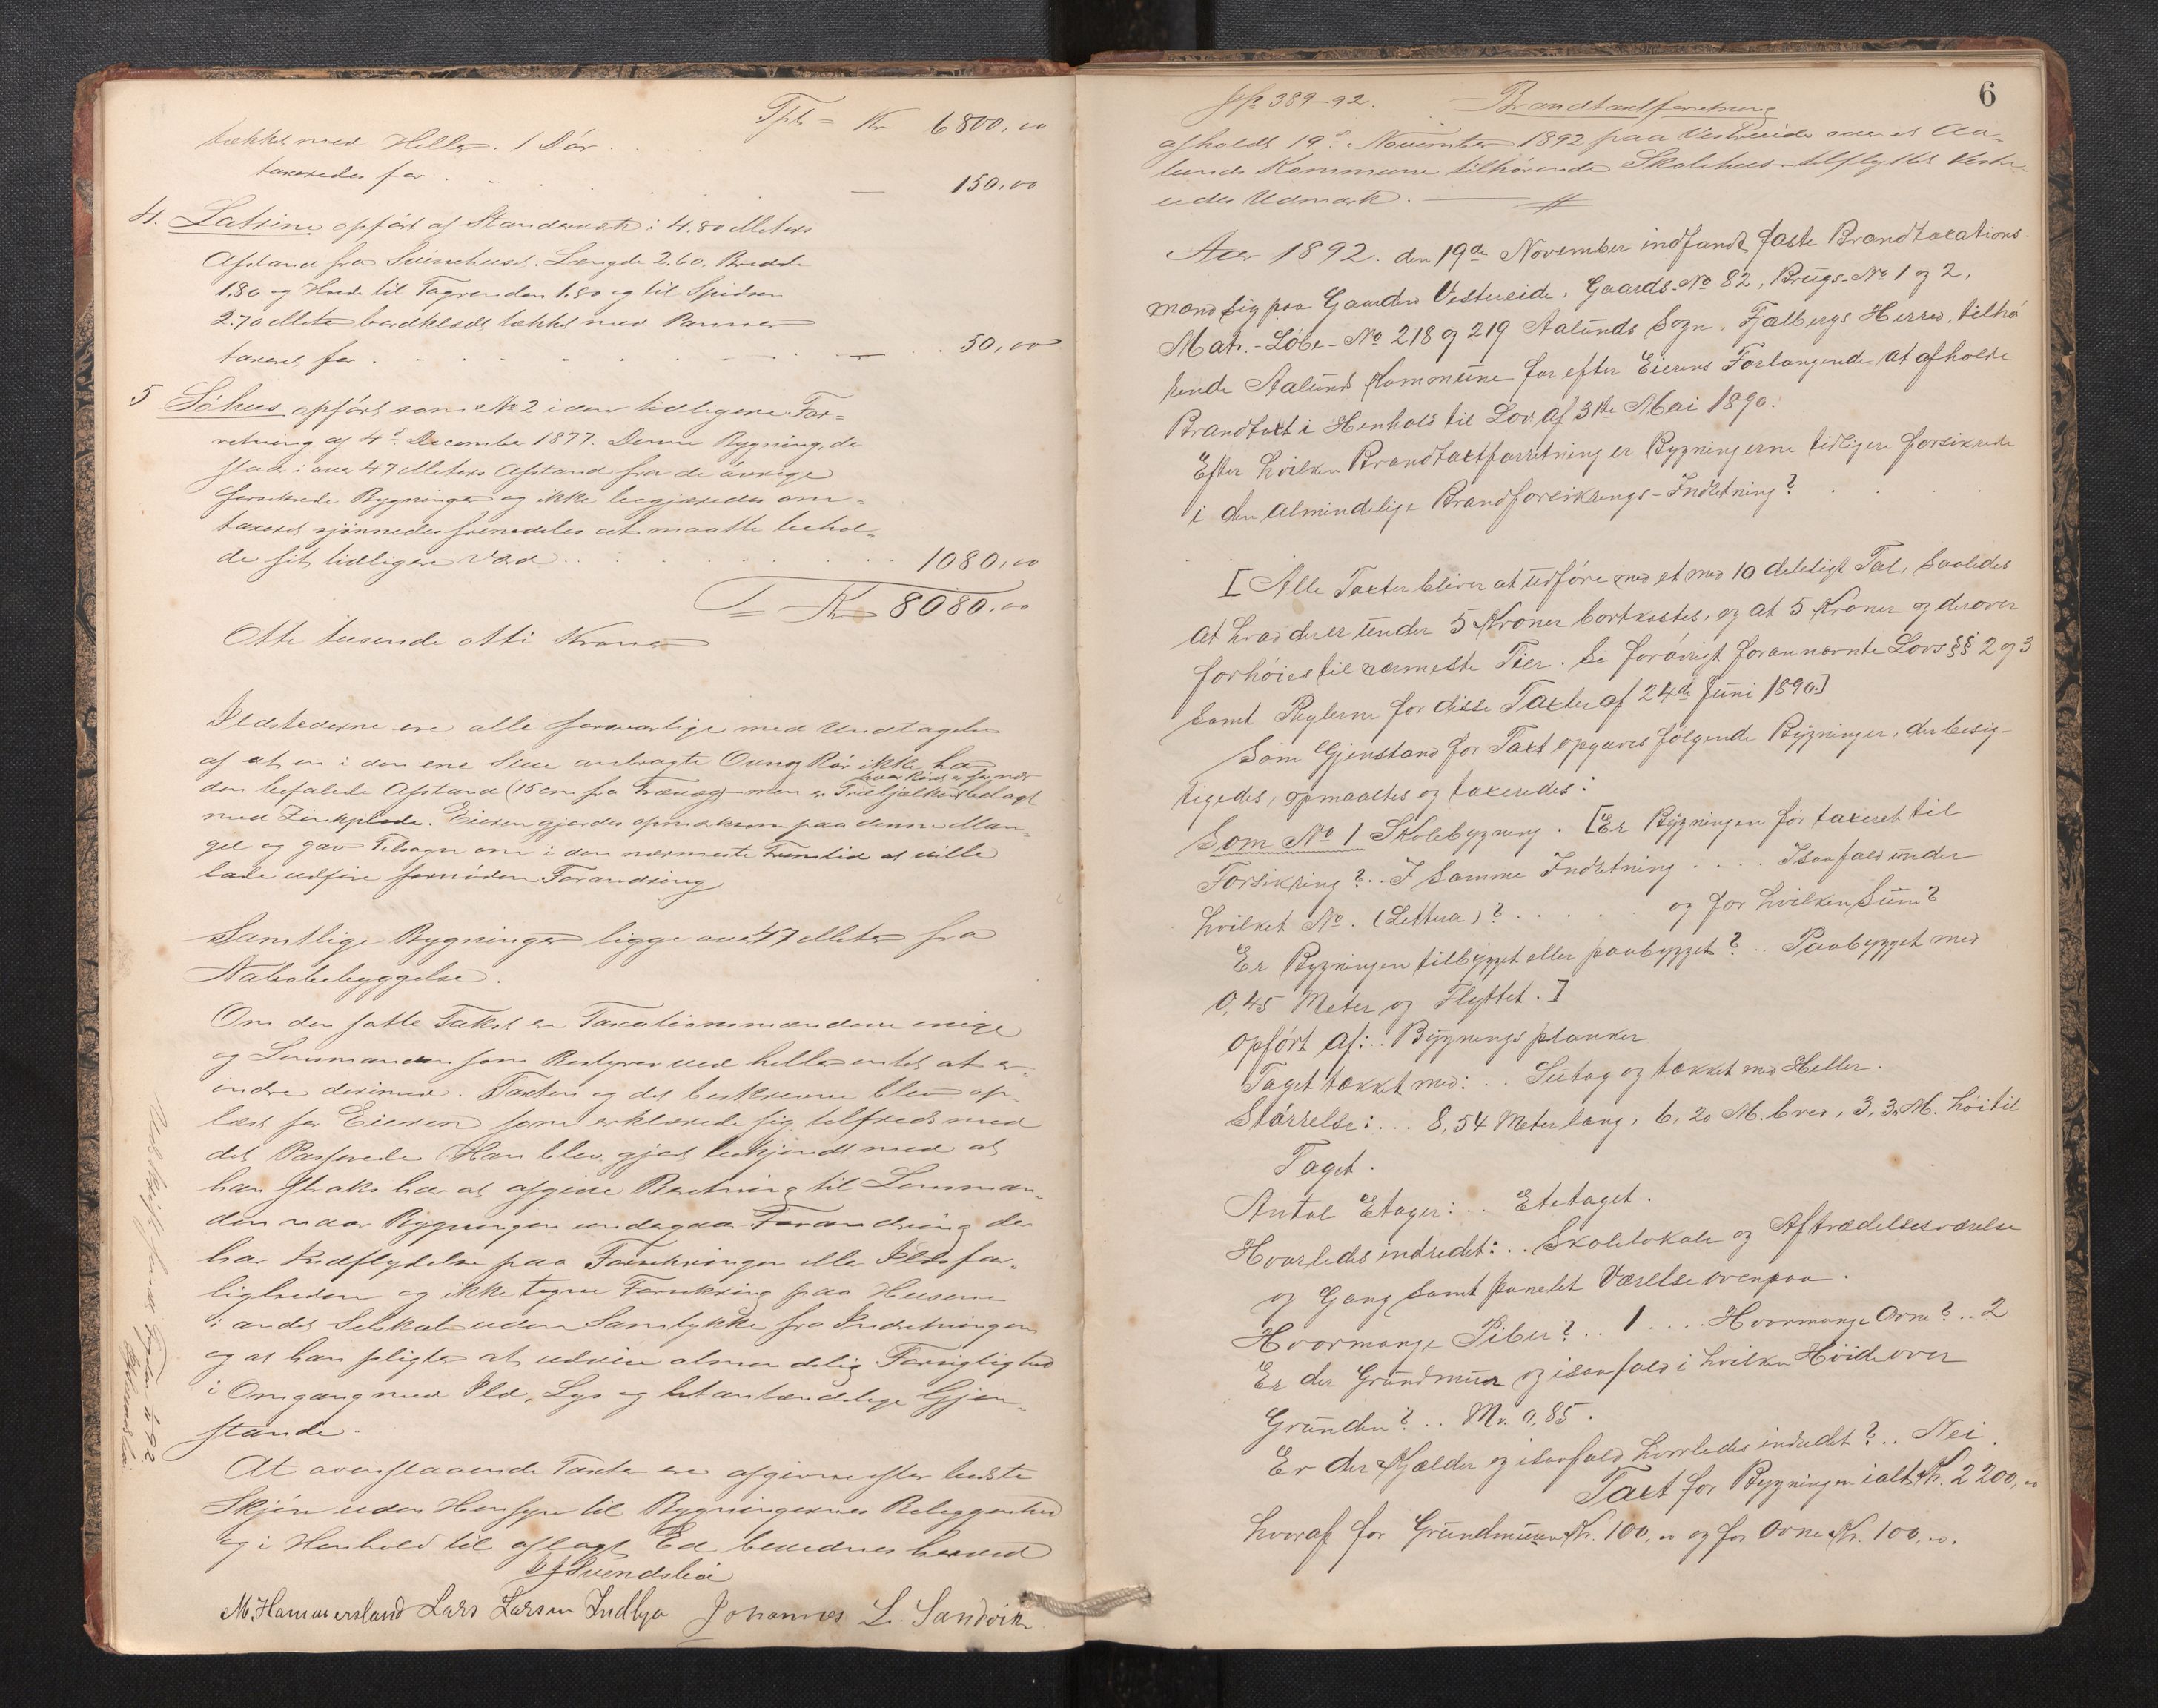 Tpt = Kr 6800,00
tækket med Heller. 1 Dør
taxeredes for . . . — 150,00
4. Latrine opført af Standværk i 4.80 Meters
Afstand fra Svinehuset. Længde 2.60. Bredde
1.80 og Høide til Tagrenden 1.80 og til Spidsen
2.70 Meter bordklædt tækket med Panner
taxeret for . . . — 50,00
5 Søhus opført som No 2 i den tidligere For=
retning af 4de December 1877. Denne Bygning, da
staar i over 47 Meters Afstand fra de øvrige
forsikrede Bygninger og ikke begjæredes om-
taxeret skjønnedes fremdeles at maatte behol-
de sit tidligere Værd . . . 1080,00
= Kr 8080,00
Otte tusende otti Kroner
Ildstederne ere alle forsvarlige med Undtagelse
af at en i den ene Stue anbragte Ovns Rør ikke har
hvor Røret er for nær
den befalede Afstand (15 cm fra Trævæg) men er Træbjælken belagt
med Zinkplade. Eieren gjordes opmærksom paa denne Man-
gel og gav Tilsagn om i den nærmeste Fremtid at ville
lade udføre fornøden Forandring
Samtlige Bygninger ligge over 47 Meter fra
Nabobebyggelse.
Om den satte Takst er Taxationsmændene enige
og Lensmanden som Bestyrer ved heller intet at er-
indre derimod. Taxten og det beskrevne blev op-
læst for Eieren som erklærede sig tilfreds med
det Passerede. Han blev gjort bekjendt med at
han straks har at afgive Beretning til Lensman-
den naar Bygningen undergaar Forandring der
har Indflydelse paa Forsikringen eller Ildsfar-
ligheden og ikke tegne Forsikring paa Husene
i andet Selskab uden Samtykke fra Indretningen
og at han pligter at udvise almindelig Forsigtighed
i Omgang med Ild, Lys og let antændelige Gjen-
stande.
At ovenstaaende Taxter ere afgivne efter bedste
Skjøn uden Hensyn til Bygningernes Beliggenhed
og i Henhold til aflagt Ed bevidnes herved
M. Hammersland Lars Larsen Indbjo Johannes L. Sandvik
6
389-92. Brandtaxtforretning
afholdt 19de November 1892 paa Vestreide over et Aa-
lunds Kommune tilhørende Skolehus tilflyttet Vestre-
eides Udmark.
Aar 1892. den 19de November indfandt faste Brandtaxations-
mænd sig paa Gaarden Vestreide, Gaards-No 82, Brugs-No 1 og 2,
Matr.-Løbe-No 218 og 219 Aalunds Sogn, Fjælbergs Herred, tilhø
rende Aalunds Kommune for efter Eierens Forlangende at afholde
Brandtaxt i Henhold til Lov af 31te Mai 1890.
Efter hvilken Brandtaxtforretning er Bygningerne tidligere forsikrede
i den almindelige Brandforsikrings-Indretning?
[Alle Taxter bliver at udføre med et med 10 deleligt Tal, saaledes
at hvad der er under 5 Kroner bortkastes, og at 5 Kroner og derover
forhøies til nærmeste Tier. Se forøvrigt forannævnte Lovs §§ 2 og 3
samt Reglerne for disse Taxter af 24de Juni 1890.]
Som Gjenstand for Taxt opgaves følgende Bygninger, der besig-
tigedes, opmaaltes og taxeredes:
Som No 1 Skolebygning. [Er Bygningen før taxeret til
Forsikring? .. I samme Indretning .... Isaafald under
hvilket No. (Lettera)? .... og for hvilken Sum?
Er Bygningen tilbygget eller paabygget? .. Paabygget med
0,45 Meter og Flyttet.]
Opført af: .. Bygningsplanker
Taget tækket med: .. Sutag og tækket med Heller.
Størrelse: ... 8,54 Meter lang, 6,20 M. bred, 3,30 M. høi til
Taget.
Antal Etager: .. Etetaget.
Hvorledes indredet: .. Skolelokale og Aftrædelsesværelse
og Gang samt panelet Værelse ovenpaa.
Hvormange Piber? .. 1 .... Hvormange Ovne? .. 2
Er der Grundmur og isaafald i hvilken Høide over
Grunden? .. M. 0,85.
Er der Kjælder og isaafald hvorledes indredet? .. Nei.
Taxt for Bygningen ialt Kr. 2200,00
hvoraf for Grundmuren Kr. 100,00 og for Ovne Kr. 100,00.